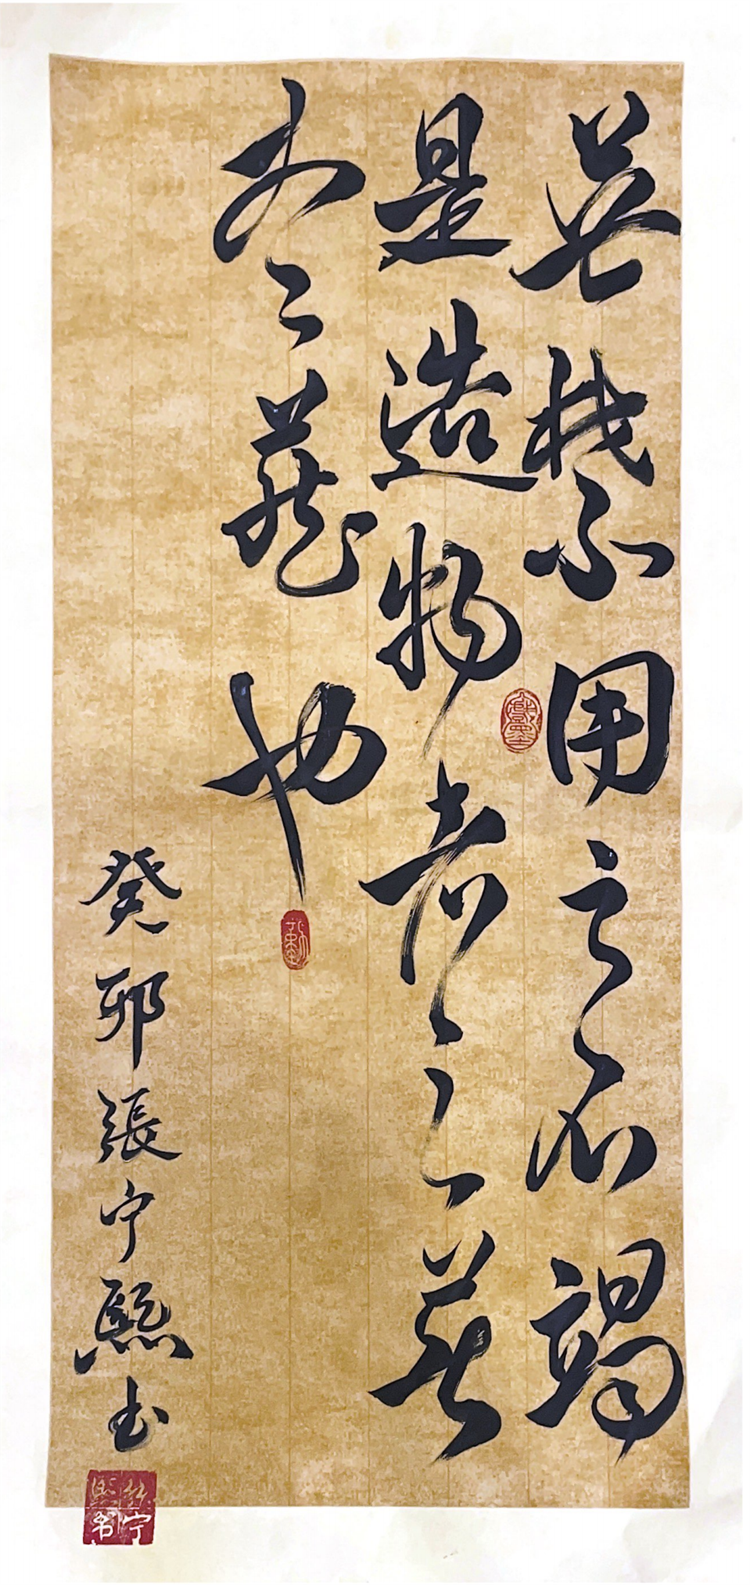 無禁用之不竭
是造物者之無
盡藏也
癸卯張宁熙书